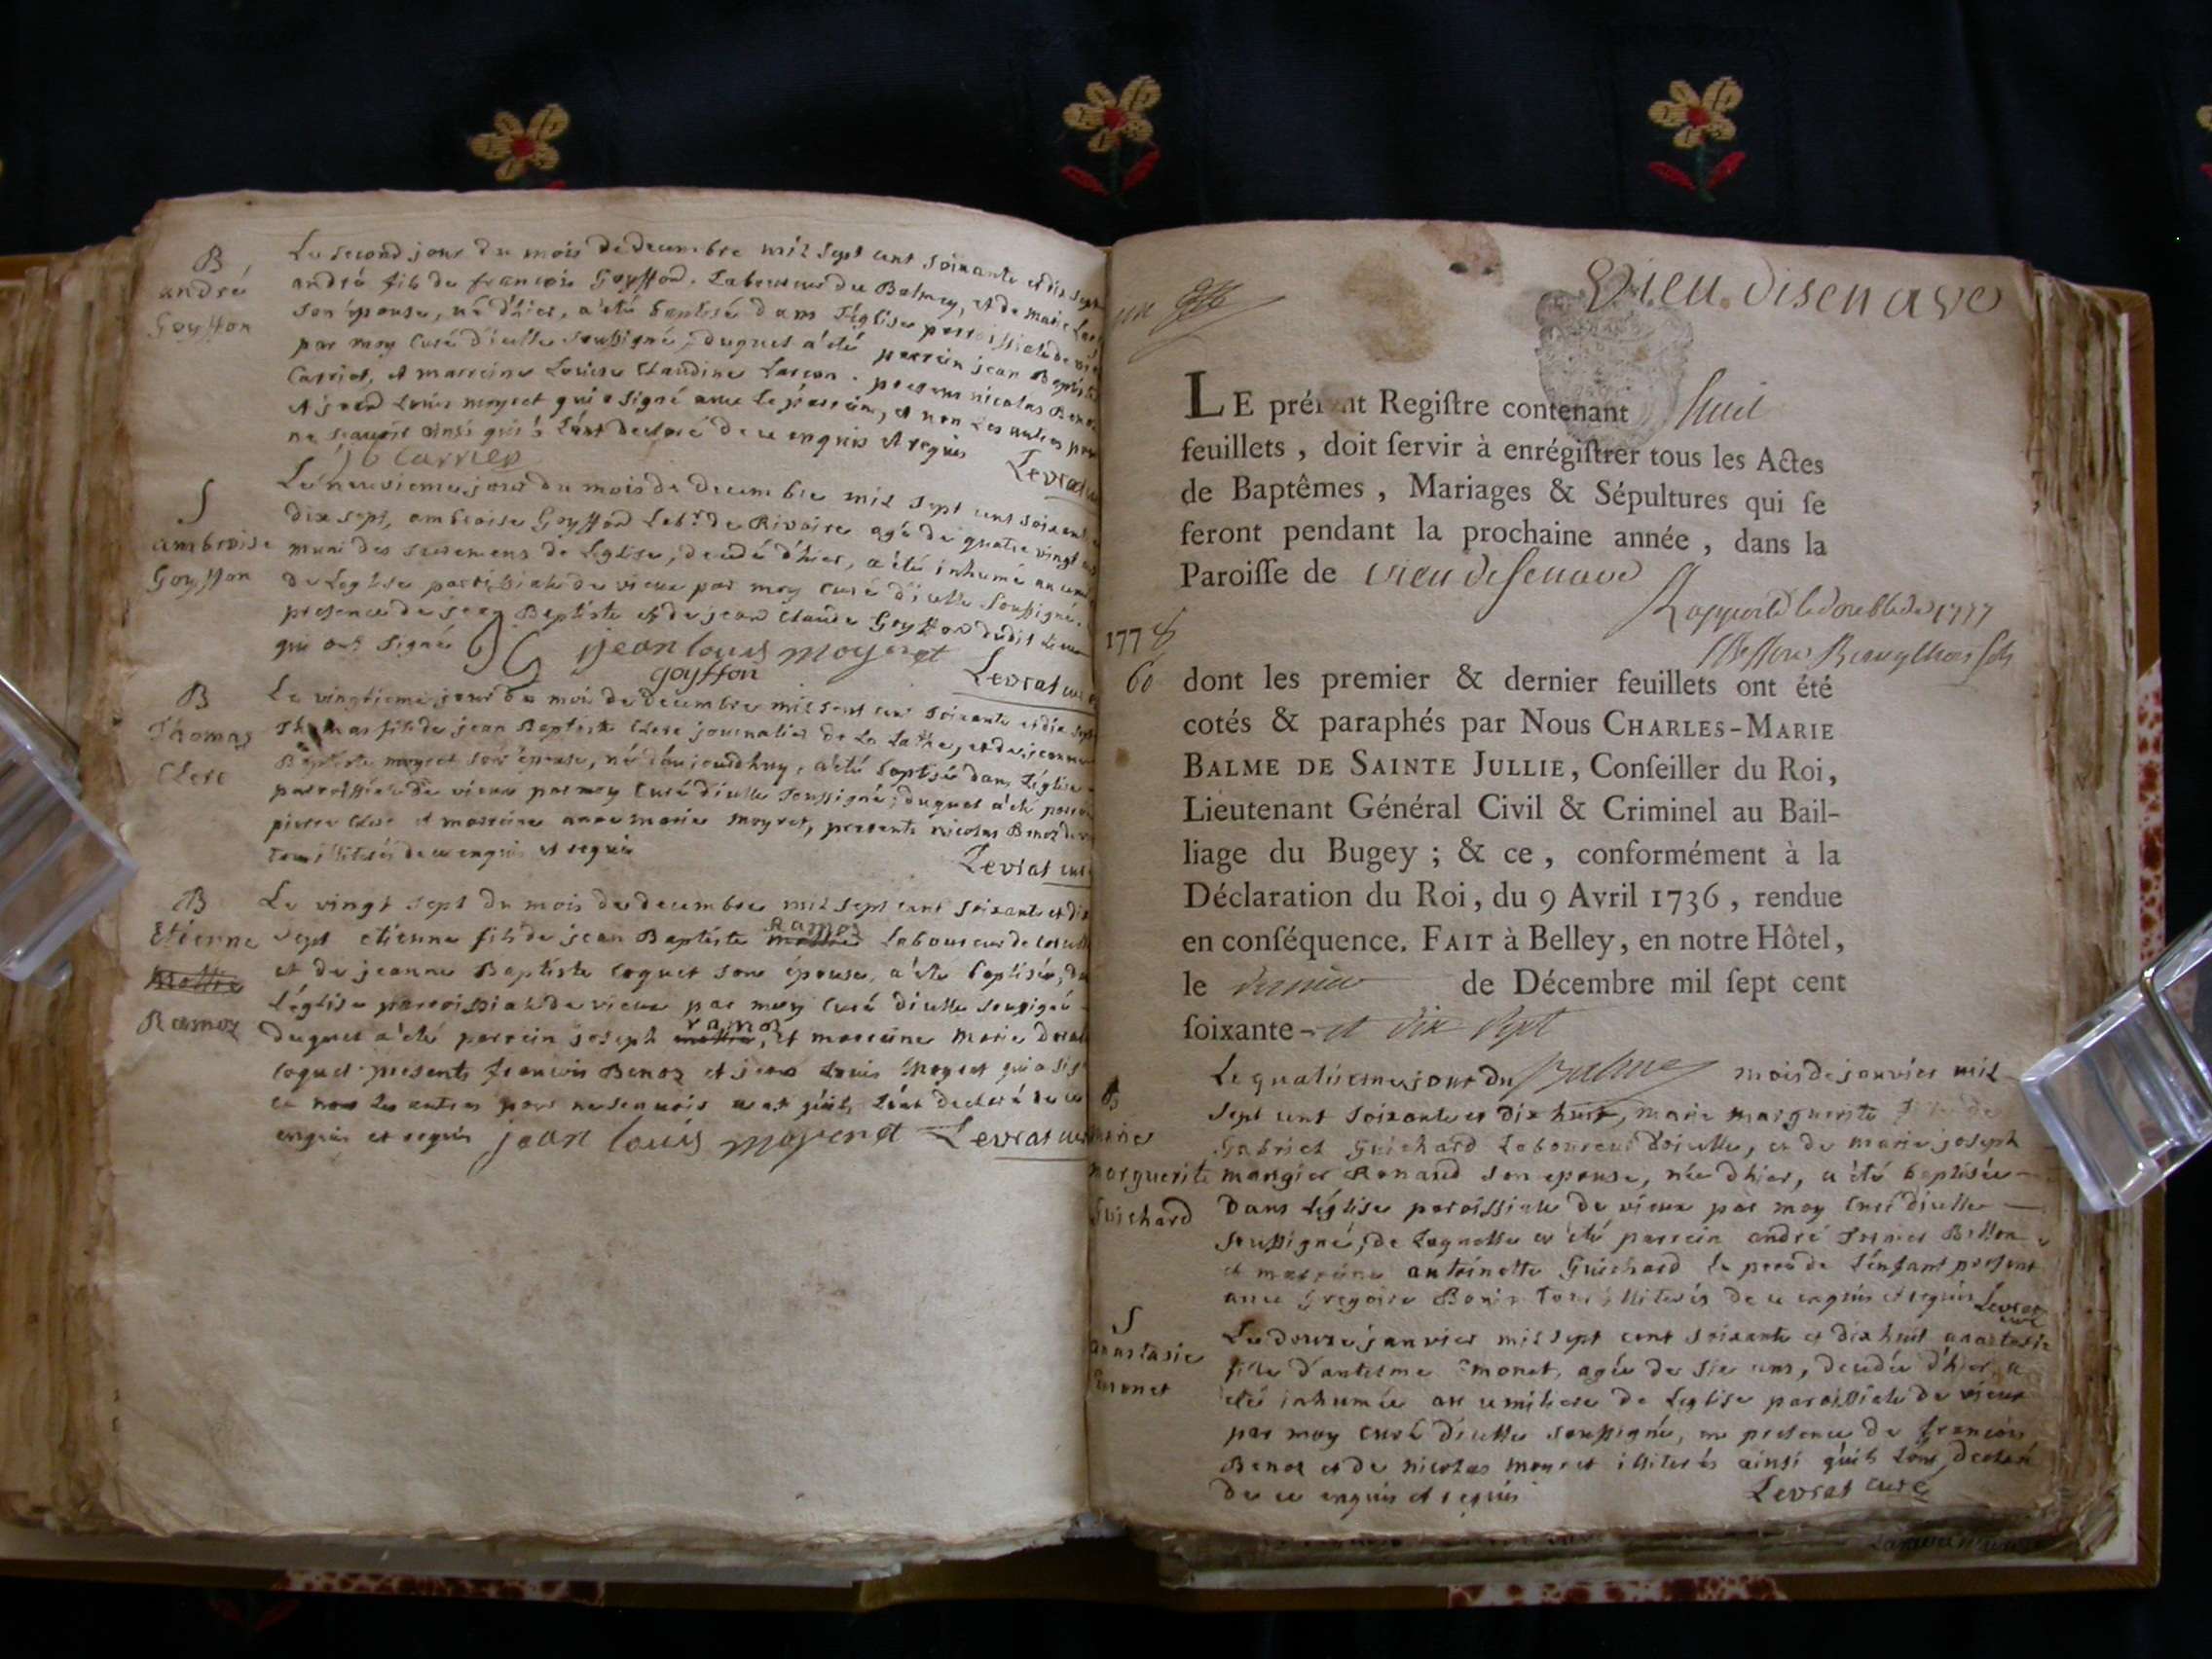 B
andré
Goyffon
Le second jour du mois de decembre mil sept cent soixante et dix sept
andré fils de francois Goyffon, Laboureur du Balmey, et de marie
son épouse, né d'hier, a été baptisé dans l'église parroissiale de
par moy curé d'icelle soussigné, duquel a été parrein jean Baptiste
Carrier, et marreine Louise Claudine Larcon. presens nicolas Benoz
et jean Louis moyret qui a signé avec le parrein, et non les autres pour
ne scavoir ainsi qu'ils l'ont declaré de ce enquis et requis
j b carrier
Levrat
S
ambroise
Goyffon
Le neuvieme jour du mois de decembre mil sept cent soixante
dix sept, ambroise Goyffon Lab.r de Rivoire agé de quatre vingt
muni des sacremens de Leglise, decedé d'hier, a été inhumé au
de Leglise parroissiale de vieux par moy curé d'icelle soussigné,
presence de jean Baptiste et de jean Claude Goyffon dudit lieu
qui ont signé
jean louis moyeret
goyffon
Levrat curé
B
Thomas
Clerc
Le vingtieme jour du mois de decembre mil sept cent soixante et dix sept
Thomas fils de jean Baptiste Clerc journalier de La et de jeanne
Baptiste moyret son épouse, né d'aujourdhuy, a été baptisé dans l'église
parroissiale de vieux par moy curé d'icelle soussigné; duquel a été parrein
pierre Clerc et marreine anne marie moyret, presents nicolas Benoz
tous illiterés de ce enquis et requis
Levrat curé
B
Etienne
Ramoz
Le vingt sept du mois de decembre mil sept cent soixante et dix
sept etienne fils de jean Baptiste Ramoz Laboureur de
et de jeanne Baptiste Coquet son épouse, a été baptisé,
l'église parroissiale de vieux par moy curé d'icelle soussigné
duquel a été parrein joseph ramoz, et marreine marie
Coquet presents francois Benoz et jean Louis moyret qui a
et non les autres pour ne scavoir ainsi qu'ils l'ont declaré de ce
enquis et requis jean louis moyeret Levrat curé
Vieu disenave
LE présent Regiſtre contenant huit
feuillets , doit ſervir à enrégiſtrer tous les Actes
de Baptêmes , Mariages & Sépultures qui ſe
feront pendant la prochaine année , dans la
Paroiſſe de vieu desenave
Rapporté le double de 1777
1778
60
dont les premier & dernier feuillets ont été
cotés & paraphés par Nous CHARLES-MARIE
BALME DE SAINTE JULLIE, Conſeiller du Roi,
Lieutenant Général Civil & Criminel au Bail-
liage du Bugey ; & ce , conformément à la
Déclaration du Roi, du 9 Avril 1736 , rendue
en conſéquence. FAIT à Belley, en notre Hôtel,
le dernier de Décembre mil ſept cent
ſoixante- et dix sept
Balme
B
marie
marguerite
Guichard
Le quatrieme jour du mois de janvier mil
sept cent soixante et dix huit, marie marguerite fille de
Gabriel Guichard Laboureur d'oiselle, et de marie joseph
mangier Renaud son epouse, née d'hier, a été baptisée
Dans l'église paroissiale de vieux par moy curé d'icelle
soussigné, de Laquelle a été parrein andré
et marreine antoinette Guichard le pere de l'enfant present
avec Gregoire tous illiterés de ce enquis et requis Levrat
curé
S
anastasie
Emonet
Le douze janvier mil sept cent soixante et dix huit anastasie
fille d'antelme Emonet, agée de six ans, decedée d'hier, a
été inhumée au cimitiere de Leglise paroissiale de vieux
par moy curé d'icelle soussigné, en presence de francois
Benoz et de nicolas moyret illiterés ainsi qu'ils l'ont declaré
de ce enquis et requis
Levrat curé